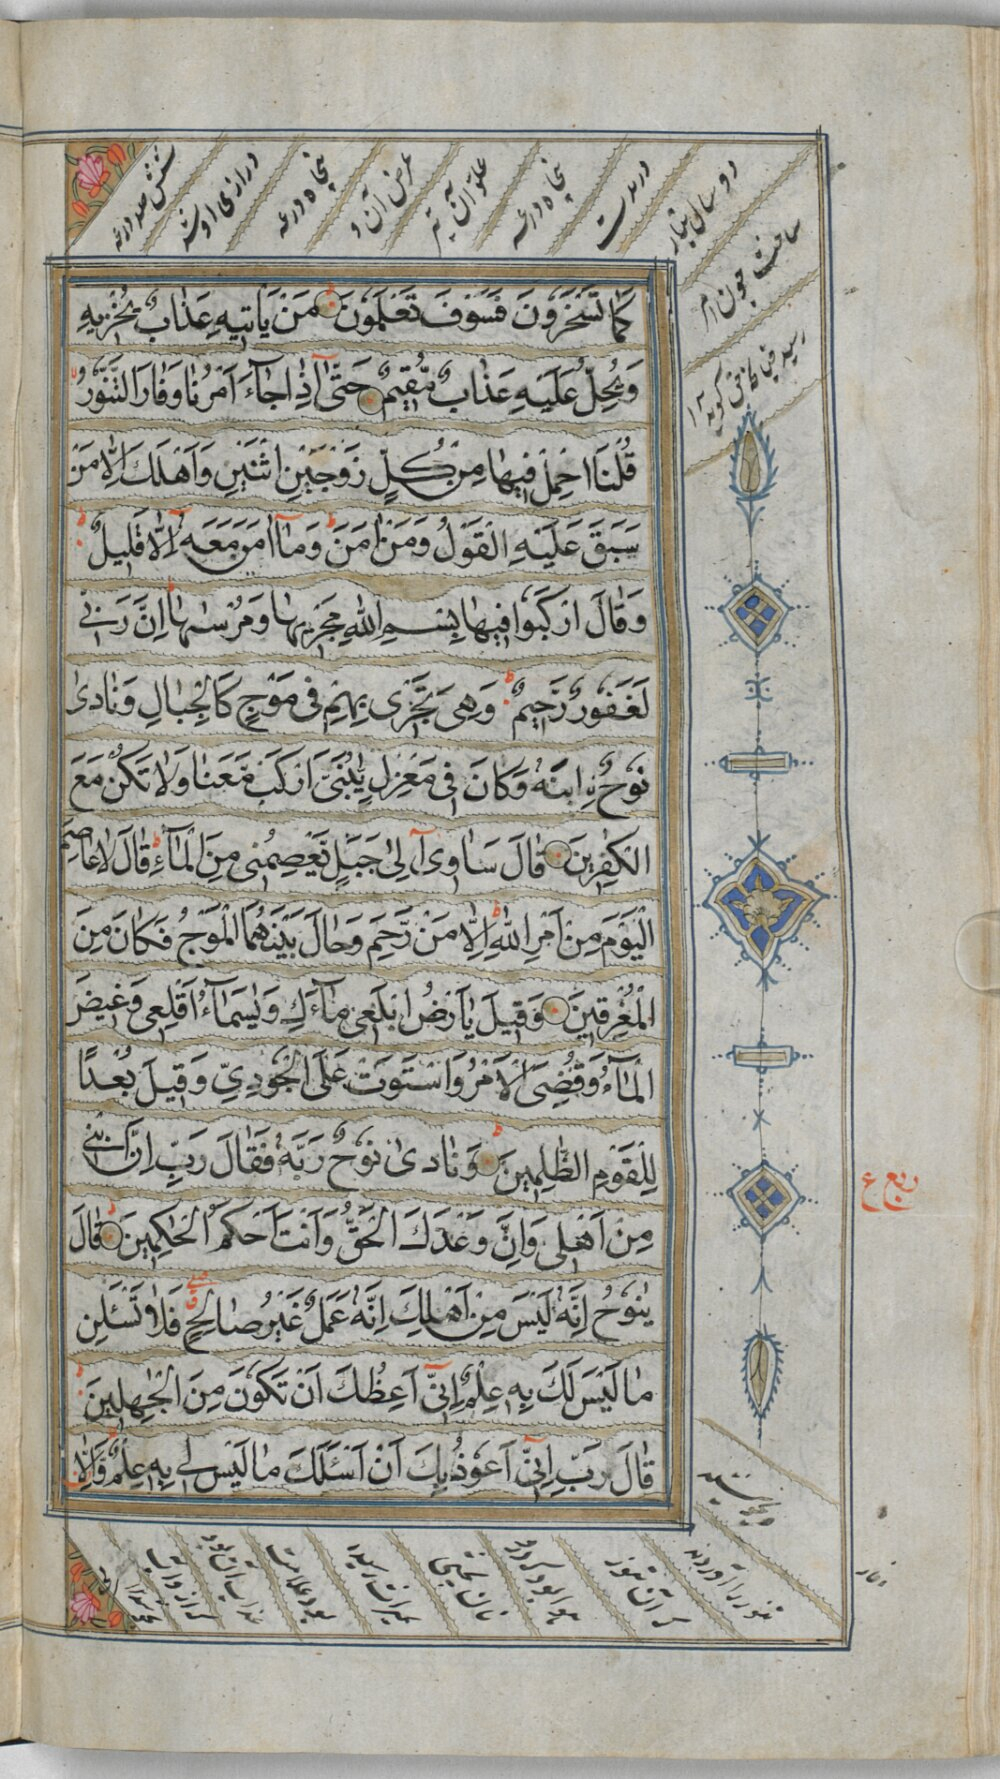 شش صد درعه
درازی او شد
پنجاه درعه
عرض آن و
علو آن تیر
پنجاه درعه
در مدت
دو سال بنیاد
ساخت چون ام
كَمَا تَسْخَرُونَ فَسَوْفَ تَعْلَمُونَ مَنْ يَاْتِيهِ عَذَابٌ يُخْزِيهِ
وَيَحِلُّ عَلَيْهِ عَذَابٌ مُّقِيمٌ حَتّٰى اِذَا جَآءَ اَمْرُنَا وَفَارَ التَّنُّورُ
قُلْنَا احْمِلْ فِيهَا مِنْ كُلٍّ زَوْجَيْنِ اثْنَيْنِ وَاَهْلَكَ اِلَّا مَنْ
سَبَقَ عَلَيْهِ الْقَوْلُ وَمَنْ اٰمَنَ وَمَآ اٰمَنَ مَعَهٗ اِلَّا قَلِيلٌ
وَقَالَ ارْكَبُوا فِيهَا بِسْمِ اللّٰهِ مَجْرٖىهَا وَمُرْسٰىهَا اِنَّ رَبِّى
لَغَفُورٌ رَّحِيمٌ وَهِىَ تَجْرِى بِهِمْ فِى مَوْجٍ كَالْجِبَالِ وَنَادٰى
نُوحٌ نِ ابْنَهٗ وَكَانَ فِى مَعْزِلٍ يٰبُنَىَّ ارْكَبْ مَّعَنَا وَلَا تَكُنْ مَعَ
الْكٰفِرِينَ قَالَ سَاٰوِىٓ اِلٰى جَبَلٍ يَّعْصِمُنِى مِنَ الْمَآءِ قَالَ لَا عَاصِمَ
الْيَوْمَ مِنْ اَمْرِ اللّٰهِ اِلَّا مَنْ رَّحِمَ وَحَالَ بَيْنَهُمَا الْمَوْجُ فَكَانَ مِنَ
الْمُغْرَقِينَ وَقِيلَ يٰٓاَرْضُ ابْلَعِى مَآءَكِ وَيٰسَمَآءُ اَقْلِعِى وَغِيضَ
الْمَآءُ وَقُضِىَ الْاَمْرُ وَاسْتَوَتْ عَلَى الْجُودِىِّ وَقِيلَ بُعْدًا
لِلْقَوْمِ الظّٰلِمِينَ وَنَادٰى نُوحٌ رَبَّهٗ فَقَالَ رَبِّ اِنَّ ابْنِى
مِنْ اَهْلِى وَاِنَّ وَعْدَكَ الْحَقُّ وَاَنْتَ اَحْكَمُ الْحٰكِمِينَ قَالَ
يٰنُوحُ اِنَّهٗ لَيْسَ مِنْ اَهْلِكَ اِنَّهٗ عَمَلٌ غَيْرُ صَالِحٍ فَلَا تَسْئَلْنِ
مَا لَيْسَ لَكَ بِهٖ عِلْمٌ اِنِّىٓ اَعِظُكَ اَنْ تَكُونَ مِنَ الْجٰهِلِينَ
قَالَ رَبِّ اِنِّىٓ اَعُوذُ بِكَ اَنْ اَسْئَلَكَ مَا لَيْسَ لِى بِهٖ عِلْمٌ وَاِلَّا
ربع ع